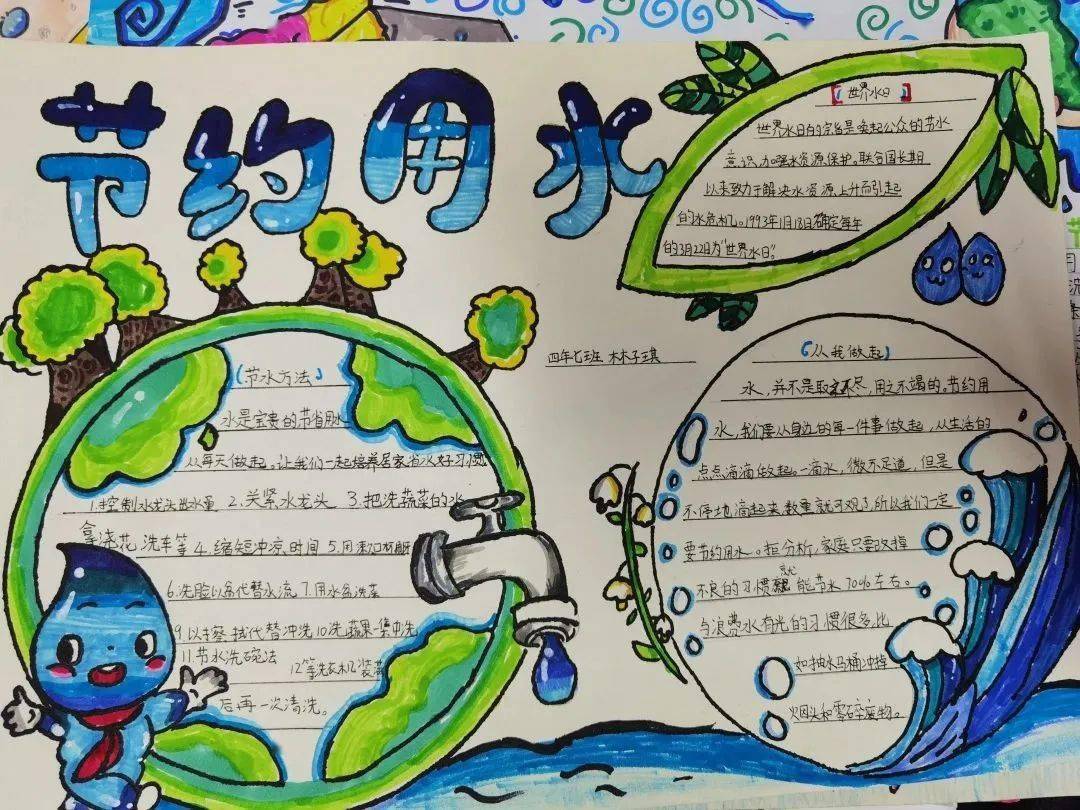 节约用水
世界水日
世界水日的宗旨是唤起公众的节水
意识,加强水资源保护。联合国长期
以来致力于解决水资源上升而引起
的水危机。1993年1月18日确定每年
的3月22日为“世界水日”。
四年七班 林子琪
(节水方法)
水是宝贵的节省用水
从每天做起。让我们一起培养居家省水好习惯
1.控制水龙头出水量 2.关紧水龙头 3.把洗蔬菜的水
拿浇花洗车等 4.缩短冲凉时间 5.用漱口杯刷牙
6.洗脸以盆代替水流 7.用水盆洗菜
9.以擦拭代替冲洗 10.洗蔬果集中洗
11.节水洗碗法 12等洗衣机装满
后再一次清洗。
(从我做起)
水,并不是取之不尽,用之不竭的。节约用
水,我们要从身边的每一件事做起,从生活的
点点滴滴做起。一滴水,微不足道,但是
不停地滴起来,数量就可观了,所以我们一定
要节约用水。据分析,家庭只要改掉
不良的习惯就能节水70%左右。
与浪费水有光的习惯很多比
如抽水马桶冲掉
烟头和零碎废物。